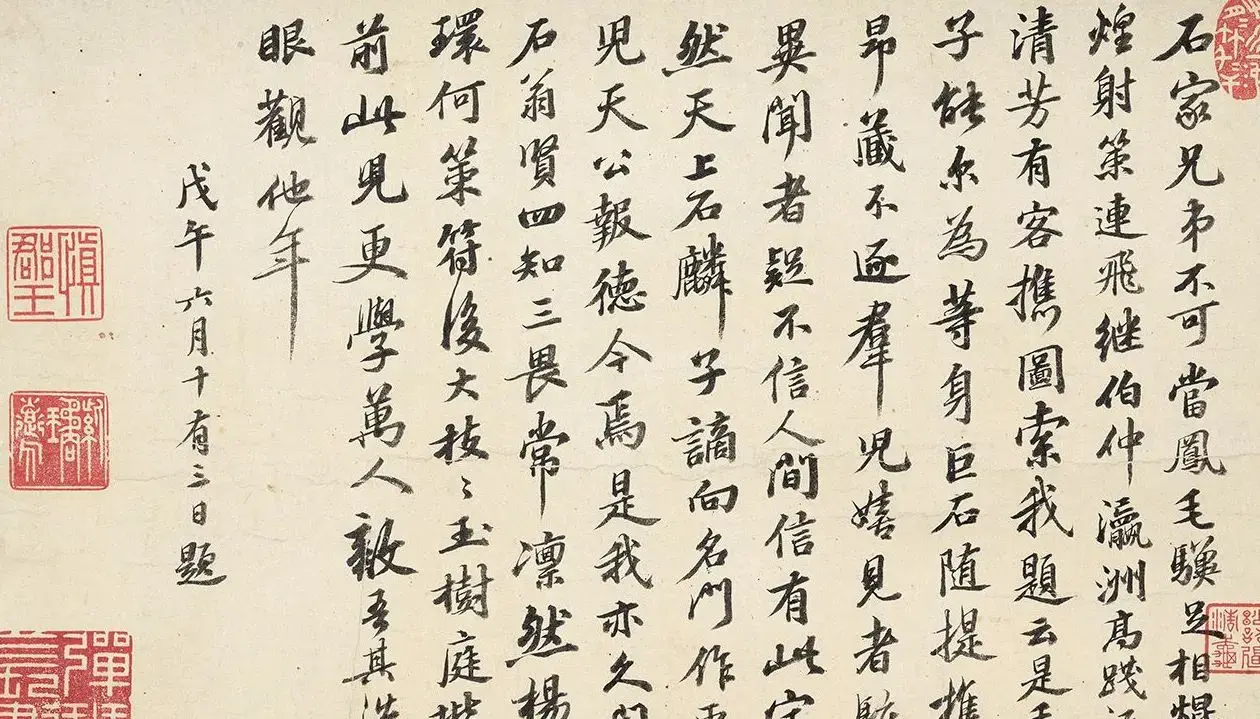 石家兄弟不可當鳳毛驥足相焜
煌射策連飛继伯仲瀛洲高踐
清芳有客携圖索我題云是
子能尔為等身巨石随提携
昂藏不逐羣児嬉見者駭
異聞者疑不信人間信有此
然天上石麟子謫向名門作
児天公報德今焉是我亦久聞
石翁賢四知三畏常凛然楊
環何策符後大枝〻玉樹庭堦
前此児更學萬人敵吾其洗
眼觀他年
戊午六月十有三日題